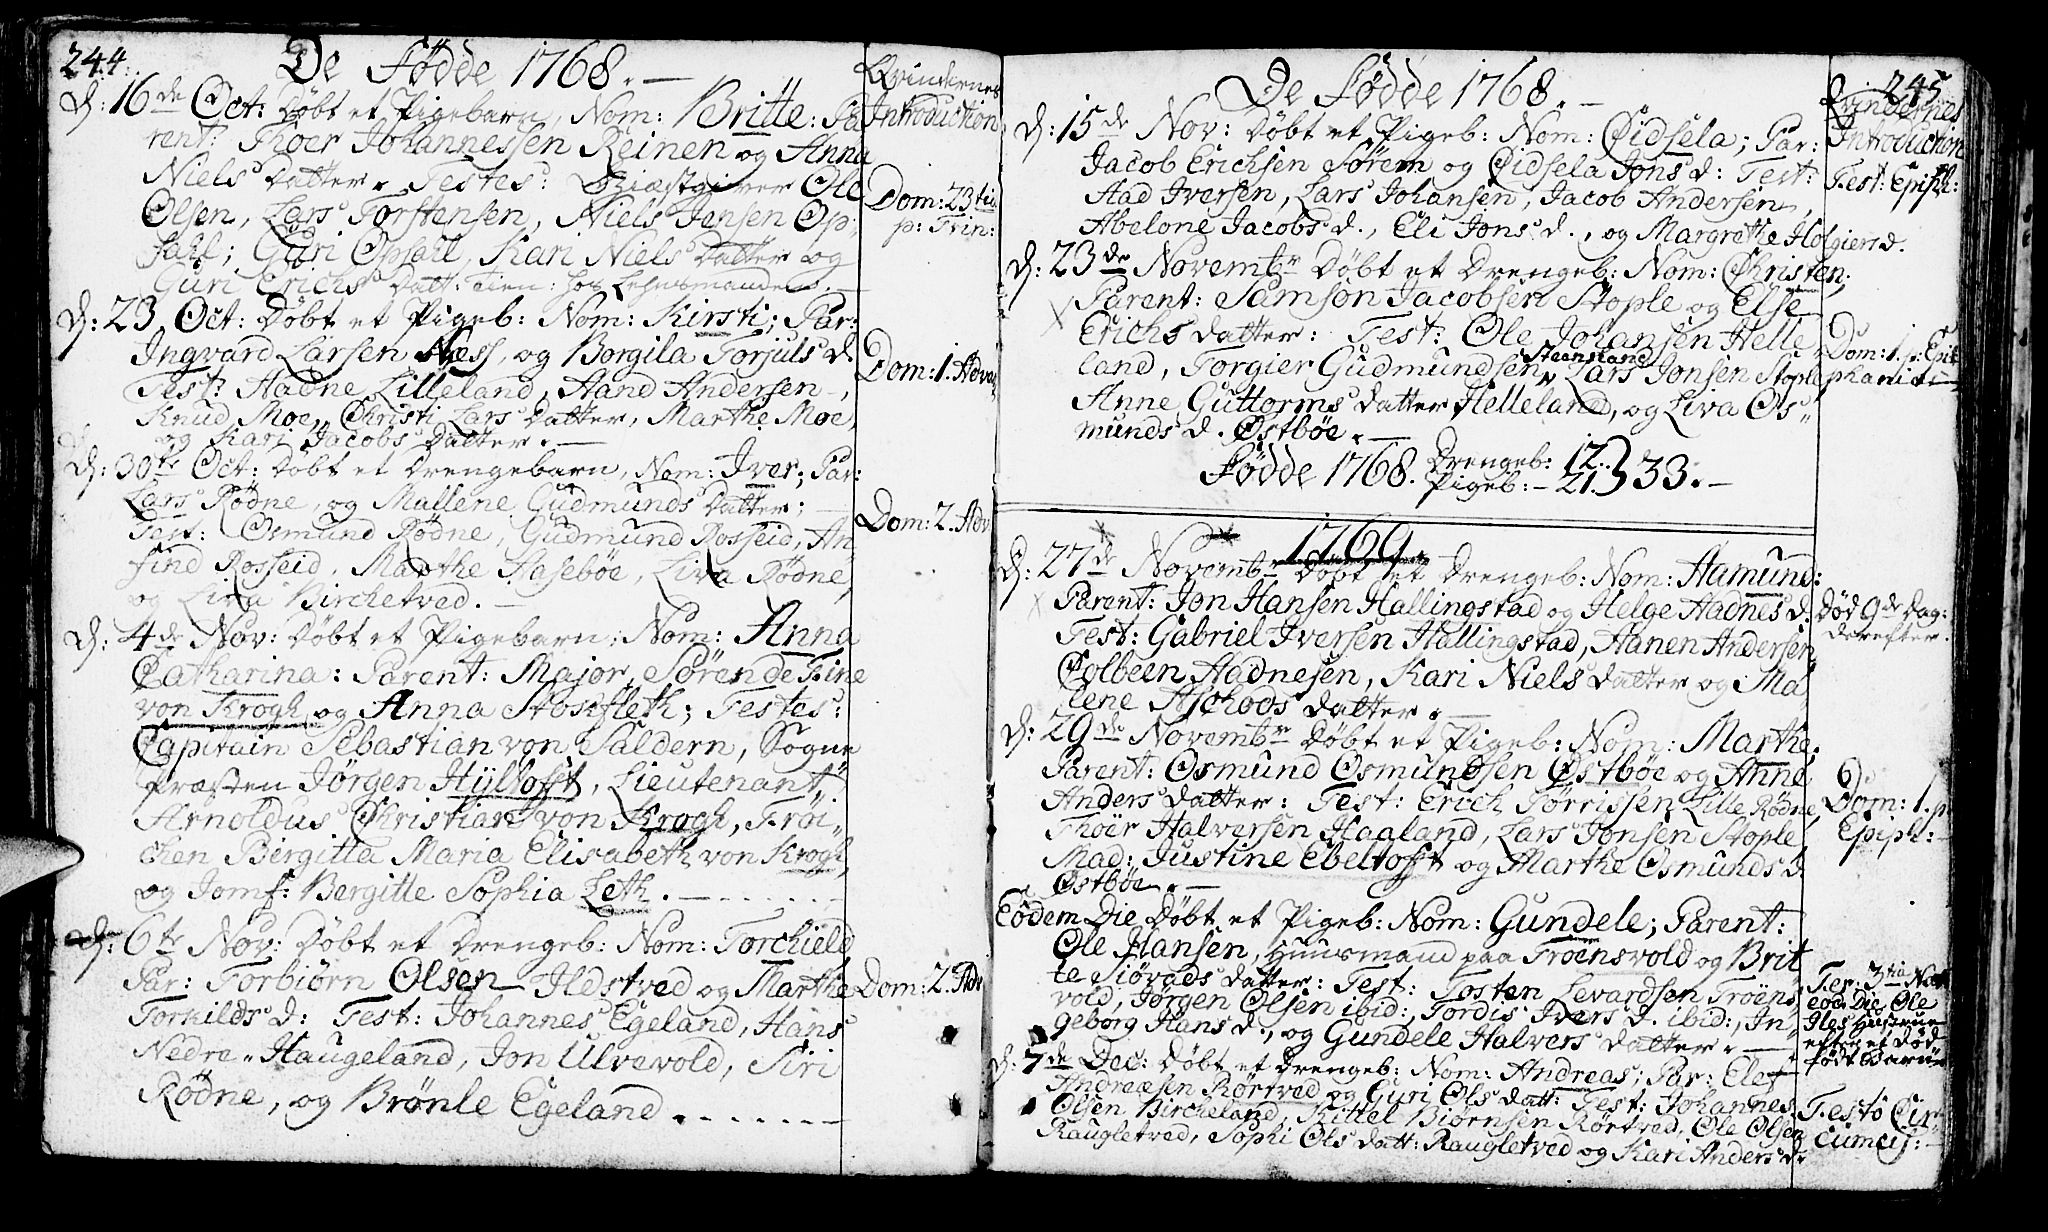 244.
De Födde 1768. —
Qvindernes
Introduction
D: 16de Oct: Döbt et Pigebarn, Nom: Britte: Pa
rent: Thoer Johannessen Reinen og Anna
Niels Datter. Testes: Giæstgiver Ole
Olsen, Lars Torstensen, Niels Jensen Op:
sahl; Guri Opsall, Kari Niels Datter og
Guri Erichs Datt: tien: hos Lehnsmanden. —
Dom: 23tia
p: Trin:
D: 23 Oct: Döbt et Pigeb: Nom: Kirsti; Par:
Ingvard Larsen Næss, og Borgila Torjuls d.
Test: Hadne Lilleland, Aand Andersen,
Knud Moe, Christi Lars Datter, Marthe Moe,
og Kari Jacobs Datter. —
Dom: 1. Advent
D: 30te Oct: Döbt et Drengebarn, Nom: Iver; Par:
Lars Rödne, og Mallene Gudmunds Datter;
Test: Osmund Rödne, Gudmund Rosseid, An
find Rosseid, Marthe Haseböe, Liva Rödne,
og Liva Birchetved. —
Dom: 2. Adv
D: 4de Nov: Döbt et Pigebarn; Nom: Anna
Catharina: Parent: Major Sören de Fine
von Krogh og Anna Stoxfleth; Testes:
Capitain Sebastian von Saldern, Sogne
Præsten Jörgen Hyltofft, Lieutenant
Arnoldus Christian von Krogh, Fröi
chen Birgitta Maria Elisabeth von Krogh,
og Jomf: Bergitte Sophia Leth. —
D: 6te Nov: Döbt et Drengeb: Nom: Torchield
Par: Torbiörn Olsen Ildstved og Marthe
Torkilds d: Test: Johannes Egeland, Hans
Nedre Haugeland, Jon Ulvevold, Siri
Rödne, og Brönle Egeland. —
Dom: 2. Adv
245
De Födde 1768. —
Qvindernes
Introduction
D: 15de Nov: Döbt et Pigeb: Nom: Oidsela; Par:
Jacob Erichsen Sörem og Oidsela Jons d: Test:
Aad Iversen, Lars Johansen, Jacob Andersen,
Abelone Jacobs d., Eli Jons d., og Margrethe Holgiersd.
Fest: Epiph:
D: 23de Novembr Döbt et Drengeb: Nom: Christen;
Parent: Samson Jacobsen Stople og Else
Erichs Datter: Test: Ole Johansen Helle
land, Torgier Gudmundsen Steensland, Lars Jonsen Stople
Anne Guttorms Datter Helleland, og Liva Os
munds d. Östböe. —
Dom: 1. p: Epi
phani
Födde 1768. Drengeb: 12.
Pigeb: — 21. } 33. —
1769.
D: 27de Novemb: Döbt et Drengeb: Nom: Aamund:
Parent: Jon Hansen Hallingstad og Helge Aadnes d.
Test: Gabriel Iversen Hallingstad, Aanen Andersen,
Colbeen Aadnesen, Kari Niels Datter og Ma
lene Aschods Datter. —
Död 9de Dag:
derefter.
D: 29de Novembr Döbt et Pigeb: Nom: Marthe.
Parent: Osmund Osmundsen Östböe og Anne
Anders Datter: Test: Erich Törrissen Lille Rödne,
Thoer Halversen Haaland, Lars Jonsen Stople,
Mad: Justine Ebeltofft og Marthe Osmunds d.
Östböe. —
Dom: 1. p.
Epiph:
Eodem Die Döbt et Pigeb: Nom: Gundele; Parent:
Ole Hansen, Huusmand paa Troensvold og Brit
te Siövads Datter: Test: Tosten Levardsen Troens
vold, Jörgen Olsen ibid:, Tordis Ivers d. ibid:, In
geborg Hans d., og Gundele Halvers Datter. —
Fer: 3tia Nat
eod: Die Ole
Iles Hustrue
efter et död
födt Barn
D: 7de Dec: Döbt et Drengeb: Nom: Andreas; Par: Elef
Andreæsen Rörtved og Guri Ols Datt: Test: Johannes
Olsen Bircheland, Kittel Biörnsen Rörtved, Ole Olsen
Raugletved, Sophi Ols Datt: Raugletved og Kari Anders d.
Festo Cir
cumcis: